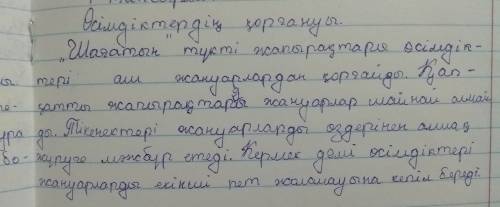 Өсімдіктердің қорғануы.
"Шағатын" түкті жапырақтары өсімдік-
тері аш жануарлардан қорғайды. Қап-
қатты жапырақтарды жануарлар шайнай алмай
ды. Тікенектері жануарларды өздерінен алшақ
жүруге мәжбүр етеді. Кермек дәмі өсімдіктері
жануарларды екінші рет жаламауына кепіл береді.